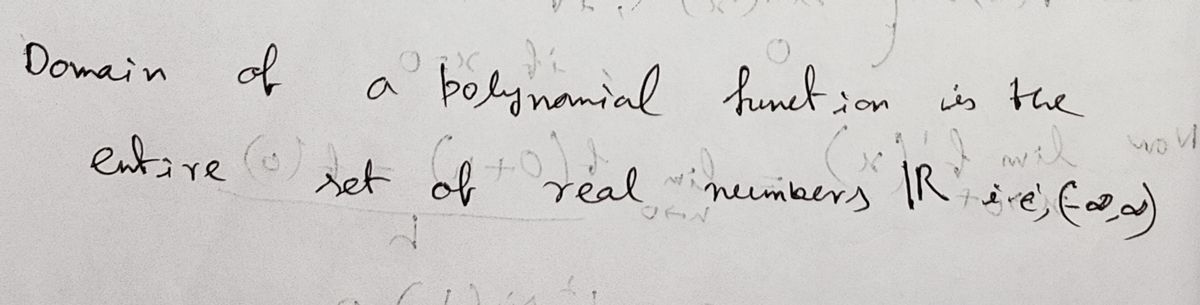 Domain of a polynomial function is the
entire set of real numbers ℝ i.e., (-∞,∞)